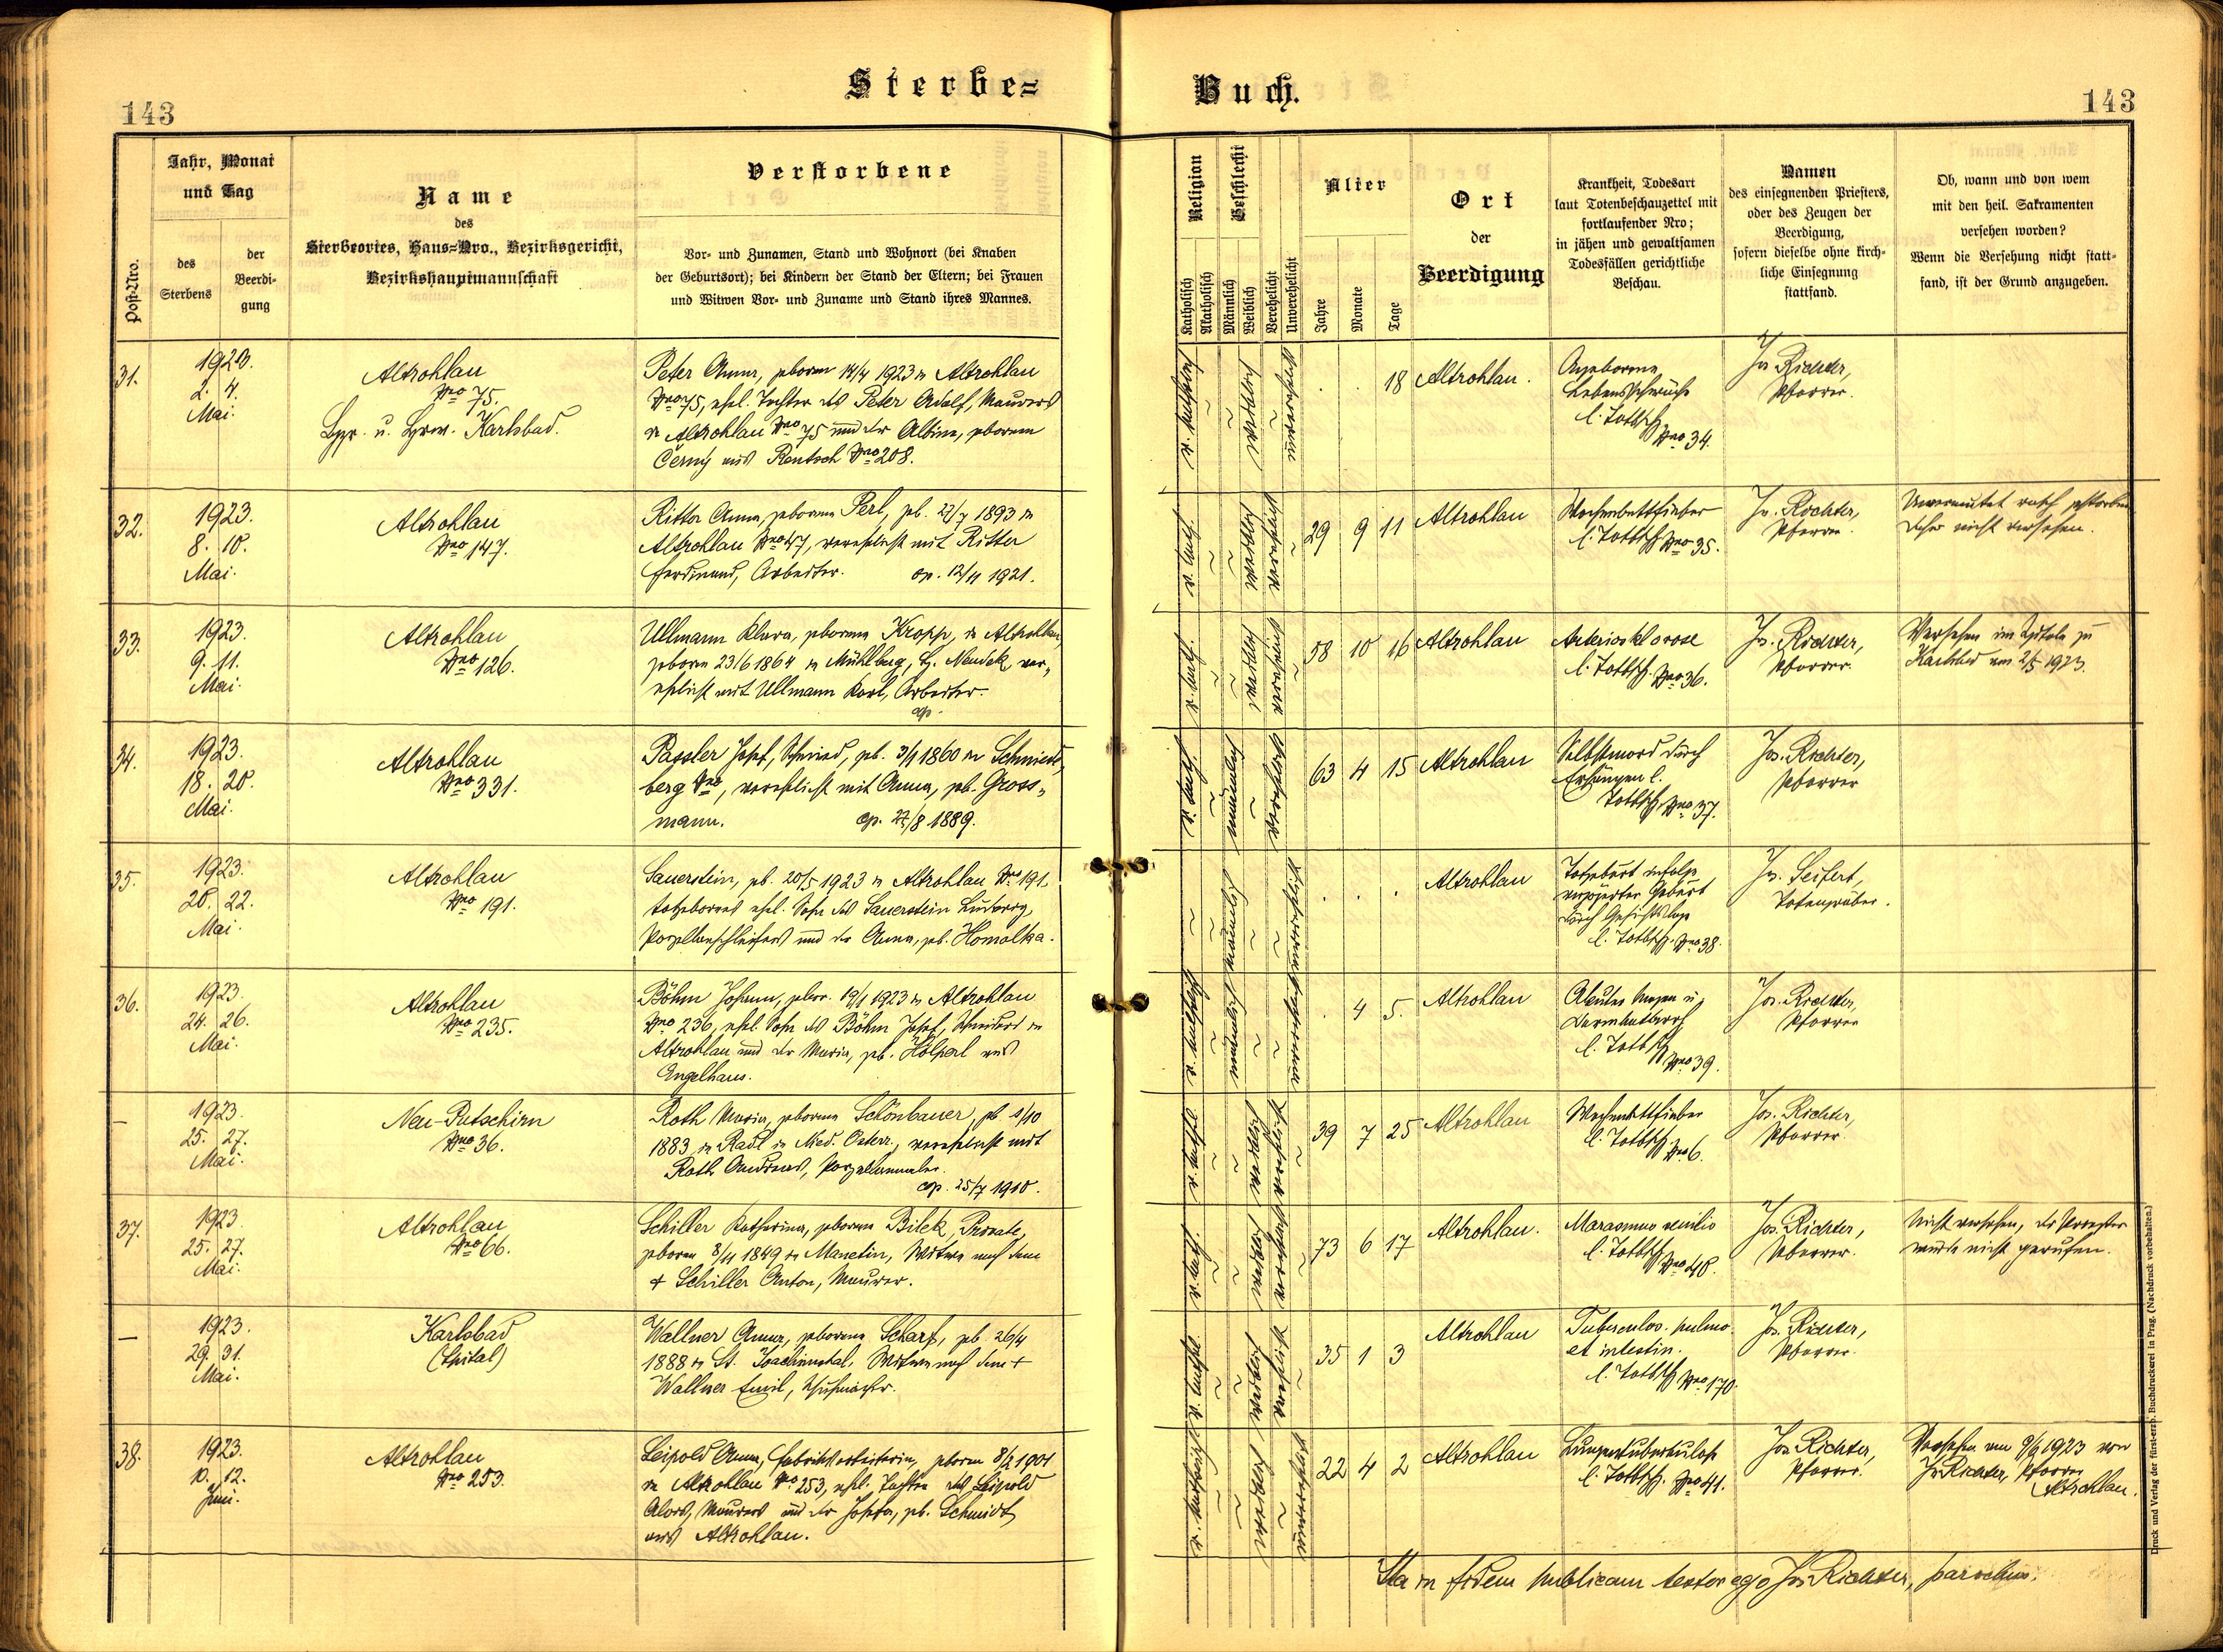 Sterbe=
Buch.
143
143
Jahr, Monat
und Tag
Post-Nro.
des
Sterbens
der
Beerdi-
gung
Name
des
Sterbeortes, Haus-Nro., Bezirksgericht,
Bezirkshauptmannschaft
Verstorbene
Vor- und Zunamen, Stand und Wohnort (bei Knaben
der Geburtsort); bei Kindern der Stand der Eltern; bei Frauen
und Witwen Vor- und Zuname und Stand ihres Mannes.
Religion
Katholisch
Akatholisch
Geschlecht
Männlich
Weiblich
Verehelicht
Unverehelicht
Alter
Jahre
Monate
Tage
Ort
der
Beerdigung
Krankheit, Todesart
laut Totenbeschauzettel mit
fortlaufender Nro;
in jähen und gewaltsamen
Todesfällen gerichtliche
Beschau.
Namen
des einsegnenden Priesters,
oder des Zeugen der
Beerdigung,
sofern dieselbe ohne kirch-
liche Einsegnung
stattfand.
Ob, wann und von wem
mit den heil. Sakramenten
versehen worden?
Wenn die Versehung nicht statt-
fand, ist der Grund anzugeben.
31.
1923.
2. 4.
Mai.
Altrohlau
Nro 75.
Karlsbad.
Peter Anna, geboren 14/4 1923 in Altrohlau
Nro 75, ehel. Tochter des Peter Adolf, Maurers
in Altrohlau Nro 75 und der Albina, geborene
Černý aus Rentsch Nro 208.
r. katholisch
weiblich
unverehelicht
18
Altrohlau.
Angeborene
Lebensschwäche
l. Totbsch
Nro 34.
Jos Richter,
Pfarrer.
32.
1923.
8. 10.
Mai.
Altrohlau
Nro 147.
Ritter Anna, geborene Perl, geb. 27/7 1893 in
Altrohlau Nro 47, verehelicht mit Ritter
Ferdinand, Arbeiter. cop. 12/11 1921.
r. kath.
weiblich
verehelicht
29 9 11
Altrohlau
Wochenbettfieber
l. Totbsch Nro 35.
Jos. Richter,
Pfarrer.
Unvermutet rasch gestorben
daher nicht versehen.
33.
1923.
9. 11.
Mai.
Altrohlau
Nro 126.
Ullmann Klara, geborene Kropp, in Altrohlau,
geboren 23/6 1864 in Mühlberg, Neudek, ver-
ehelicht mit Ullmann Karl, Arbeiter.
cop.
r. kath.
weiblich
verehelicht
58 10 16
Altrohlau
Arteriosklerose
l. Totbsch. Nro 36.
Jos. Richter,
Pfarrer.
Versehen im Spitale zu
Karlsbad am 2/5 1923.
34.
1923.
18. 20.
Mai.
Altrohlau
Nro 331.
Passler Josef, Schmied, geb. 3/1 1860 in Schmiede-
berg Nro , verehelicht mit Anna, geb. Gross-
mann. cop. 27/8 1889.
r. kath
männlich
verehelicht
63 4 15
Altrohlau
Selbstmord durch
Erhängen l.
Totbsch Nro 37.
Jos. Richter,
Pfarrer
35.
1923.
20. 22.
Mai.
Altrohlau
Nro 191.
Sauerstein, geb. 20/5 1923 in Altrohlau Nro 191.
totgeborener ehel. Sohn des Sauerstein Ludwig,
Porzellanschleifers und der Anna, geb. Homolka.
männlich
unverehelicht
Altrohlau
Totgeburt infolge
verzögerter Geburt
durch Gesichtslage
l. Totbsch. Nro 38.
Jos. Seifert,
Totengräber.
36.
1923.
24. 26.
Mai.
Altrohlau
Nro 235.
Böhm Johann, gebor. 19/1 1923 in Altrohlau
Nro 236, ehel. Sohn des Böhm Josef, Schneiders in
Altrohlau und der Maria, geb. aus
Engelhaus.
r. katholisch
männlich
unverehelicht
4 5.
Altrohlau
Akuter Magen u.
Darmkatarrh
l. Totbsch
Nro 39.
Jos. Richter,
Pfarrer
—
1923.
25. 27.
Mai.
Neu-Putschirn
Nro 36.
Roth Maria, geborene Schönbauer, geb. 1/10
1883 in Raxl in Nied. Österr., verehelicht mit
Roth Andreas, Porzellanmaler.
cop. 25/7 1910.
weiblich
verehelicht
39 7 25
Altrohlau
Wochenbettfieber
l. Totbsch. Nro 6.
Jos. Richter,
Pfarrer.
37.
1923.
25. 27.
Mai.
Altrohlau
Nro 66.
Schiller Katharina, geborene Bilek, Private,
geboren 8/11 1849 in Manetin, Witwe nach dem
+ Schiller Anton, Maurer.
r. kath.
weiblich
verehelicht
73 6 17
Altrohlau.
Marasmus senilis
l. Totbsch Nro 40.
Jos. Richter,
Pfarrer.
Nicht versehen, der Priester
wurde nicht gerufen.
—
1923.
29. 31.
Mai.
Karlsbad
(Spital)
Wallner Anna, geborene Scharf, geb. 26/4
1888 in St. Joachimsthal, Witwe nach dem +
Wallner Emil, Schuhmacher.
weiblich
verehelicht
35 1 3
Altrohlau
Tuberculos. pulmo.
et intestin.
l. Totbsch Nro 170.
Jos. Richter,
Pfarrer.
38.
1923.
10. 12.
Juni.
Altrohlau
Nro 253.
Leipold Anna, Fabriksarbeiterin, geboren 8/2 1901
in Altrohlau Nro 253, ehel. Tochter des Leipold
Alois, Maurers und der Josefa, geb. Schmidt
aus Altrohlau.
r. katholisch
weiblich
unverehelicht
22 4 2
Altrohlau
Lungentuberkulose
l. Totbsch. Nro 41.
Jos Richter,
Pfarrer.
Versehen am 9/6 1923 von
Jos Richter, Pfarrer
Altrohlau.
Ita in fidem publicam testor ego Jos Richter, parochus.
Druck und Verlag der fürst-erzb. Buchdruckerei in Prag. (Nachdruck vorbehalten.)